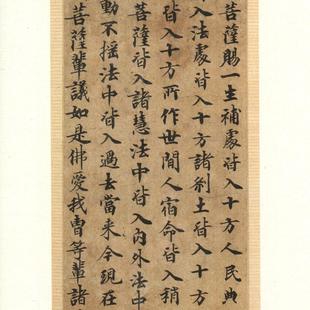 菩薩賜一生補處皆入十方人民典
入法處皆入十方諸剎土皆入十方
皆入十方所作世間人宿命皆入稍
菩薩皆入諸慧法中皆入內外法中
動不搖法中皆入過去當来今現在
菩薩輩議如是佛愛我曹等輩諸